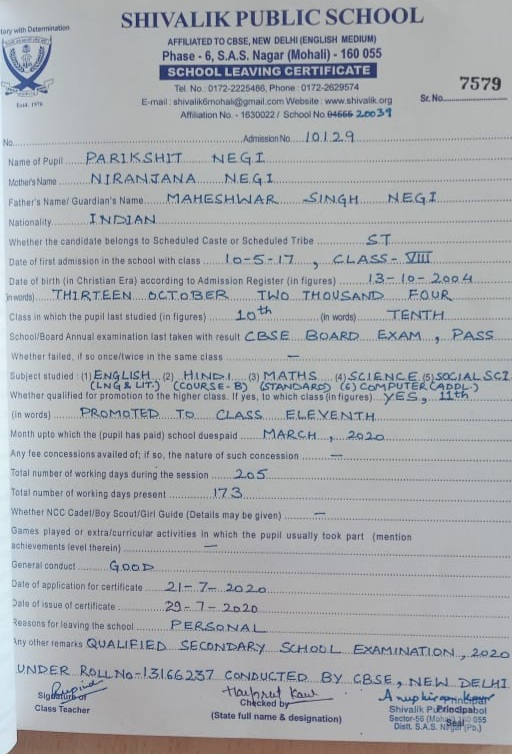 tory with Determination
SHIVALIK PUBLIC SCHOOL
AFFILIATED TO CBSE, NEW DELHI (ENGLISH MEDIUM)
Phase - 6, S.A.S. Nagar (Mohali) - 160 055
SCHOOL LEAVING CERTIFICATE
Estd. 1976
Tel. No.: 0172-2225486, Phone : 0172-2629574
E-mail : shivalik6mohali@gmail.com Website : www.shivalik.org
Sr. No. 7579
Affiliation No. - 1630022 / School No. 04566 20039
No. Admission No. 10129
Name of Pupil PARIKSHIT NEGI
Mother's Name NIRANJANA NEGI
Father's Name/ Guardian's Name MAHESHWAR SINGH NEGI
Nationality INDIAN
Whether the candidate belongs to Scheduled Caste or Scheduled Tribe ST
Date of first admission in the school with class 10-5-17, CLASS-VIII
Date of birth (in Christian Era) according to Admission Register (in figures) 13-10-2004
(in words) THIRTEEN OCTOBER TWO THOUSAND FOUR
Class in which the pupil last studied (in figures) 10th (in words) TENTH
School/Board Annual examination last taken with result CBSE BOARD EXAM, PASS
Whether failed, if so once/twice in the same class —
Subject studied : (1) ENGLISH (2) HINDI (3) MATHS (4) SCIENCE (5) SOCIAL SCI
(LNG & LIT.) (COURSE-B) (STANDARD) (6) COMPUTER (ADDL.)
Whether qualified for promotion to the higher class. If yes, to which class (in figures) YES, 11th
(in words) PROMOTED TO CLASS ELEVENTH
Month upto which the (pupil has paid) school duespaid MARCH, 2020
Any fee concessions availed of; if so, the nature of such concession —
Total number of working days during the session 205
Total number of working days present 173
Whether NCC Cadet/Boy Scout/Girl Guide (Details may be given) —
Games played or extra/curricular activities in which the pupil usually took part (mention
achievements level therein) —
General conduct GOOD
Date of application for certificate 21-7-2020
Date of issue of certificate 29-7-2020
Reasons for leaving the school PERSONAL
Any other remarks QUALIFIED SECONDARY SCHOOL EXAMINATION, 2020
UNDER ROLL No-13166237 CONDUCTED BY CBSE, NEW DELHI
Signature of
Class Teacher
Harpreet Kaur
Checked by
(State full name & designation)
Principal
Shivalik Public
Sector-56 (Mohali) 160 055
Seal
Distt. S.A.S. Nagar (Pb.)